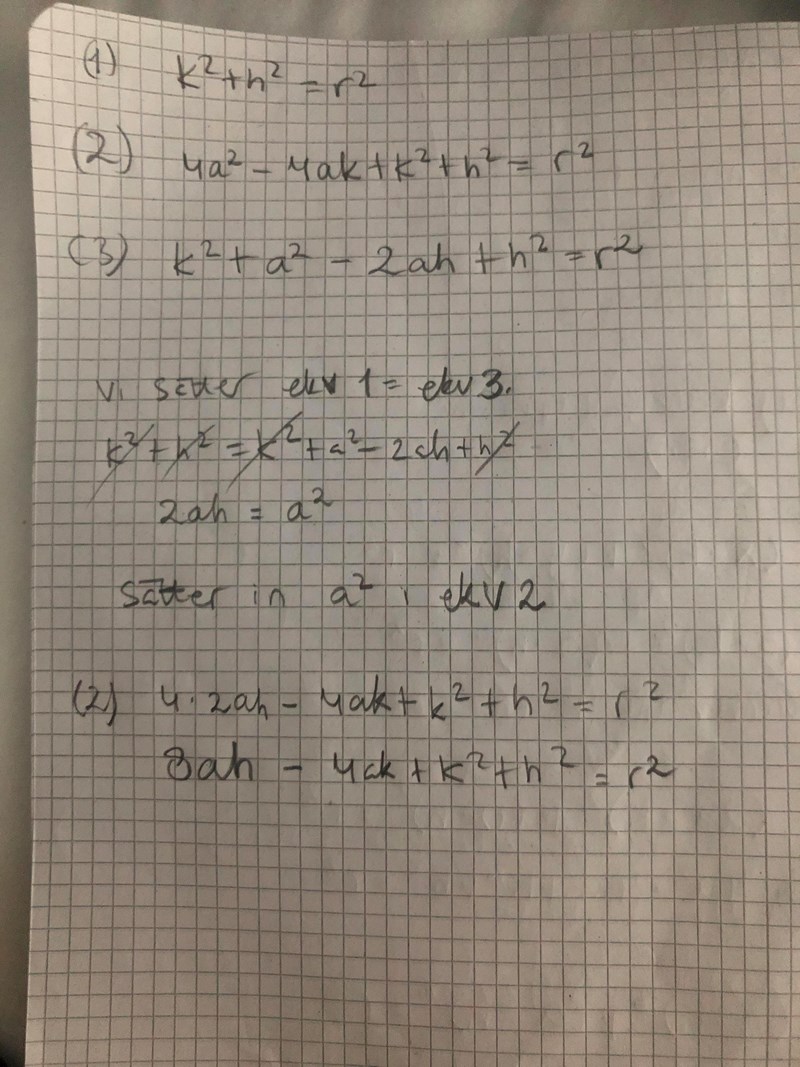 (1) k² + h² = r²
(2) 4a² - 4ak + k² + h² = r²
(3) k² + a² - 2ah + h² = r²
Vi sätter ekv 1 = ekv 3.
k² + h² = k² + a² - 2ah + h²
2ah = a²
Sätter in a² i ekv 2
(2) 4·2ah - 4ak + k² + h² = r²
8ah - 4ak + k² + h² = r²